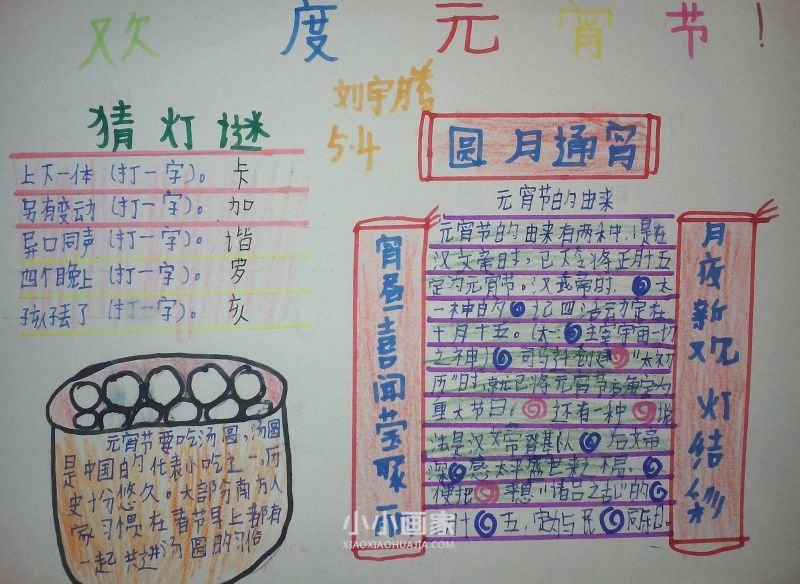 欢度元宵节!
刘宇腾
5.4
猜灯谜
上下一体(打一字)。卡
另有变动(打一字)。加
异口同声(打一字)。谐
四个晚上(打一字)。罗
孩子丢了(打一字)。亥
元宵节要吃汤圆,汤圆
是中国的代表小吃之一,历
史十分悠久。大部分南方人
家习惯在春节早上都有
一起共进汤圆的习俗
圆月通宵
宵昼喜闻莺歌
月夜新观灯结彩
元宵节的由来
元宵节的由来有两种,1是在
汉文帝时,已下令将正月十五
定为元宵节。汉武帝时,太
一神的 祀四活动定在
十月十五。(太一:主宰宇宙一切
之神) 司马迁创建"太初
历"时,就已将元宵节者康定为
重大节日。还有一种说
法是汉文帝登基队 后文帝
深感太平盛世来 不易,
便把平息"诸吕之乱"的
十五,定为与民同乐日。
小小画家
XIAOXIAOHUAJIA.COM